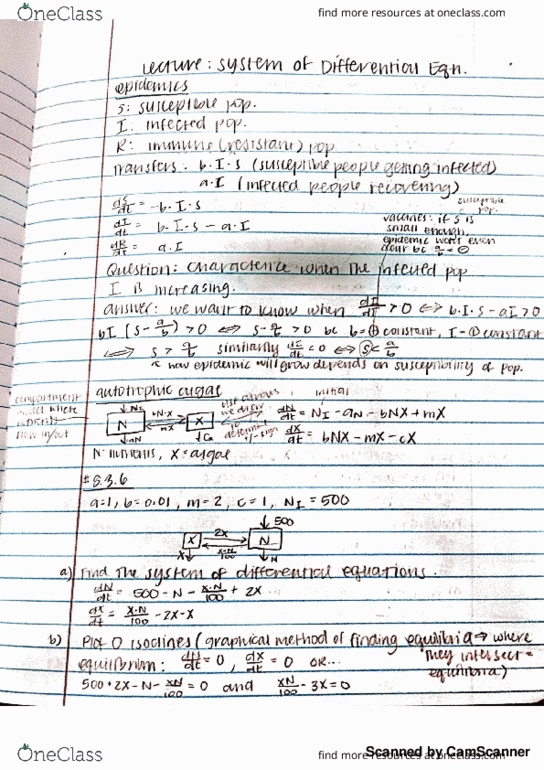 OneClass
find more resources at oneclass.com
Lecture: System of Differential Eqn.
epidemics
S: susceptible pop.
I: infected pop.
R: immune (resistant) pop
transfers: b·I·S (susceptible people getting infected)
a·I (infected people recovering)
dS/dt = -b·I·S
dI/dt = b·I·S - a·I
dR/dt = a·I
susceptible pop.
vaccines: if S is
small enough,
epidemic won't even
occur bc
Question: Characterize when the infected pop
I is increasing.
answer: we want to know when dI/dt > 0 ⟺ b·I·S - aI > 0
bI (S - a/b) > 0 ⟺ S - a/b > 0 bc b = ⊕ constant, I - ⊕ constant
⟺ S > a/b similarly dI/dt < 0 ⟺ S < a/b
how epidemic will grow depends on susceptibility of pop.
autotrophic algae
compartment
model where
nutrients
flow in/out
N_I
N
bN·X
mX
X
aN
Cx
use arrows
we draw
to
determine
+/- sign
initial
dN/dt = N_I - aN - bNX + mX
dX/dt = bNX - mX - cX
N: nutrients, X = algae
# 8.3.6
a=1, b=0.01, m=2, c=1, N_I = 500
500
X
2X
X·N/100
N
X
N
a) Find the system of differential equations.
dN/dt = 500 - N - X·N/100 + 2X
dX/dt = X·N/100 - 2X - X
b) Plot 0 isoclines (graphical method of finding equilibria → where
they intersect =
equilibria)
equilibrium: dN/dt = 0, dX/dt = 0 OR...
500 + 2X - N - XN/100 = 0 and XN/100 - 3X = 0
OneClass
find more resources at oneclass.com
Scanned by CamScanner